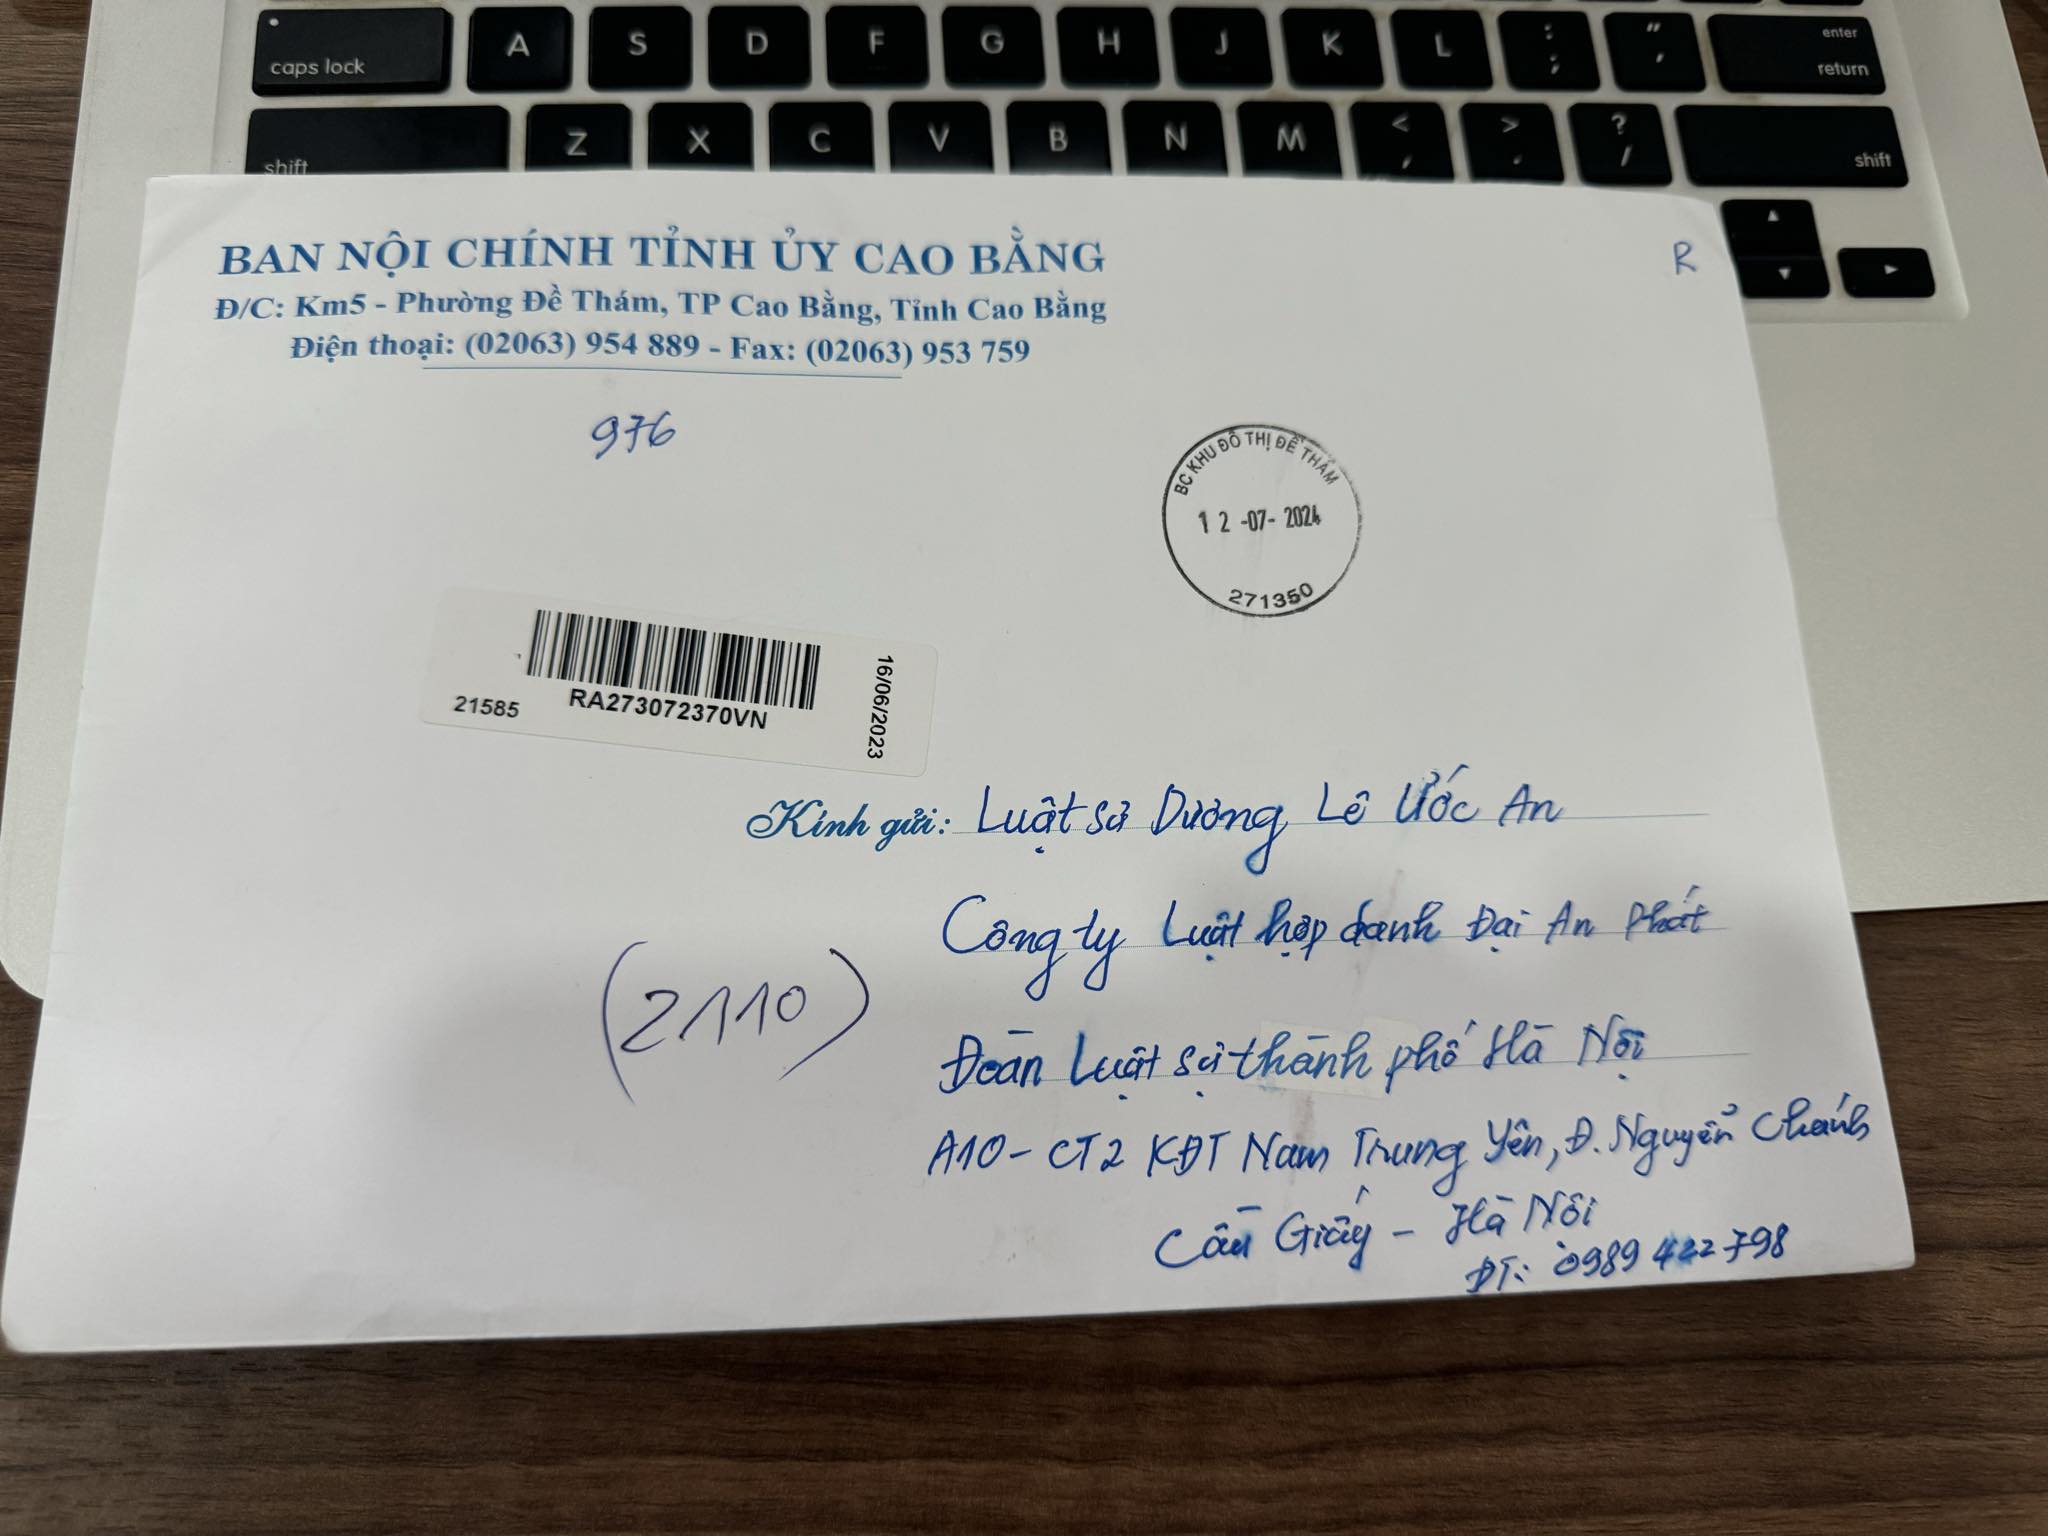 caps lock A S D F G H J K L : ; " ' enter return
shift Z X C V B N M < , > . ? / shift
BAN NỘI CHÍNH TỈNH ỦY CAO BẰNG
R
Đ/C: Km5 - Phường Đề Thám, TP Cao Bằng, Tỉnh Cao Bằng
Điện thoại: (02063) 954 889 - Fax: (02063) 953 759
976
BC KHU ĐÔ THỊ ĐỀ THÁM
12-07-2024
271350
16/06/2023
21585 RA273072370VN
Kính gửi: Luật sư Dương Lê Ước An
Công ty Luật hợp danh Đại An Phát
(2110)
Đoàn Luật sư thành phố Hà Nội
A10 - CT2 KĐT Nam Trung Yên, Đ. Nguyễn Chánh
Cầu Giấy - Hà Nội
ĐT: 0989 422 798